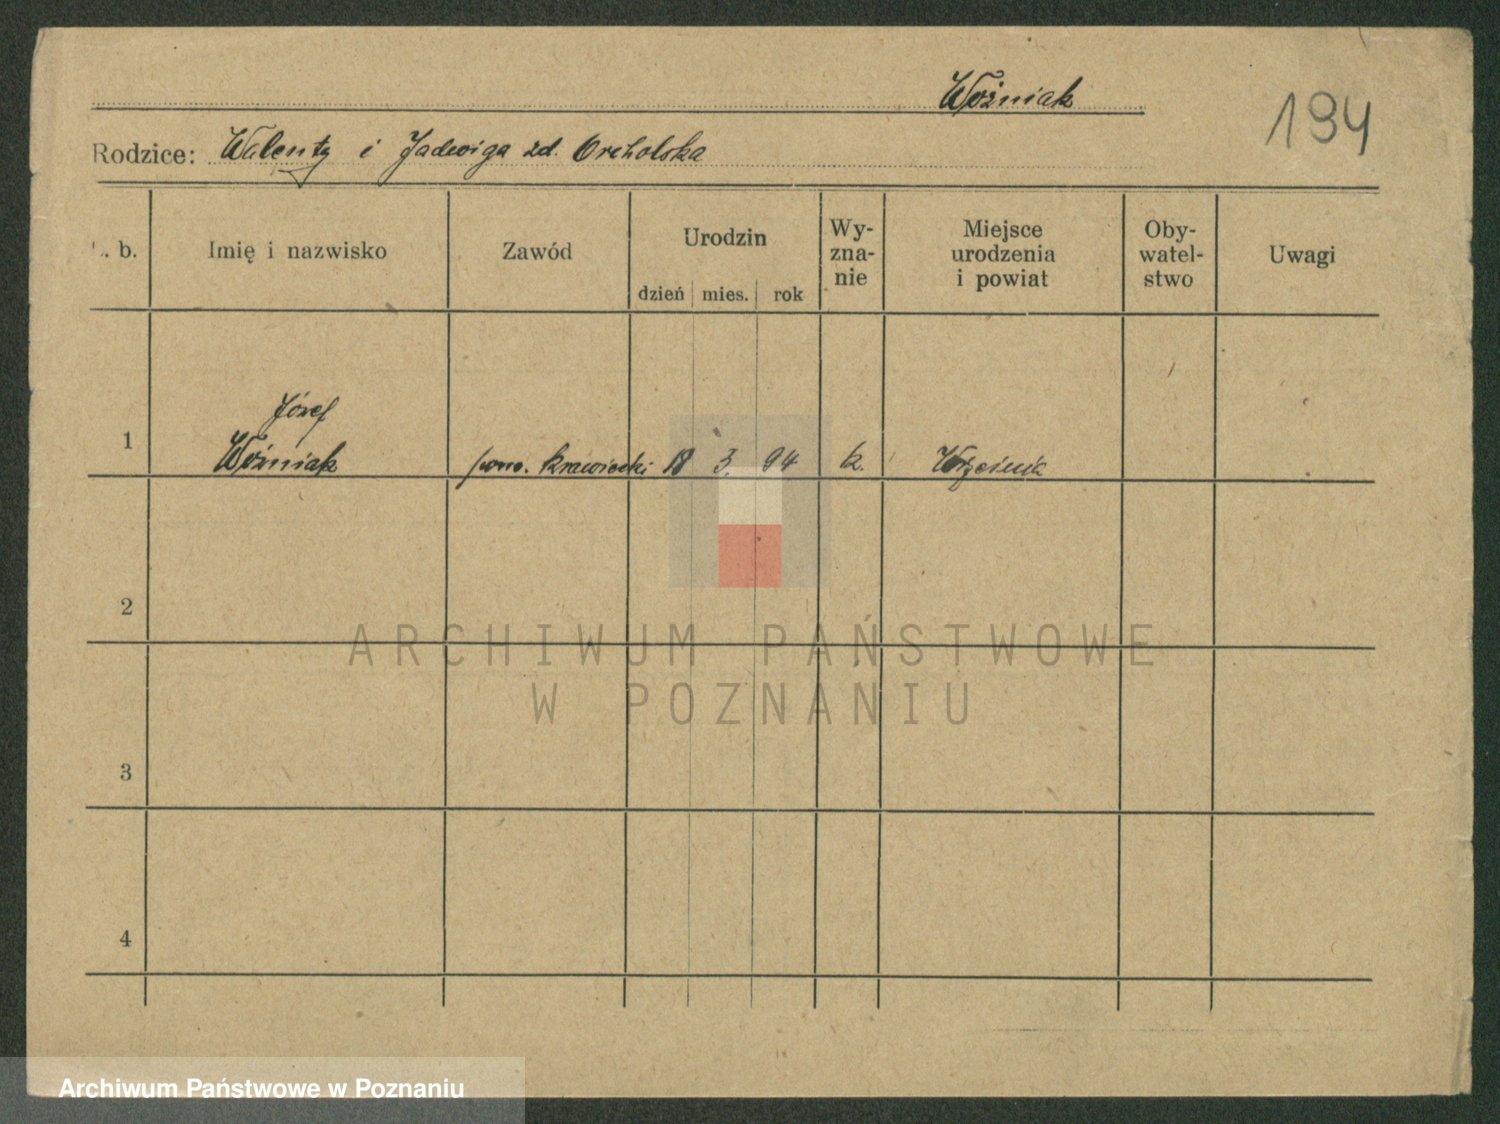 Woźniak
194
Rodzice: Walenty i Jadwiga zd. Orcholska
. b.
Imię i nazwisko
Zawód
Urodzin
dzień mies. rok
Wy-
zna-
nie
Miejsce
urodzenia
i powiat
Oby-
watel-
stwo
Uwagi
1
Józef
Woźniak
pom. krawiecki
18 3. 94
k.
2
3
4
ARCHIWUM PAŃSTWOWE
W POZNANIU
Archiwum Państwowe w Poznaniu